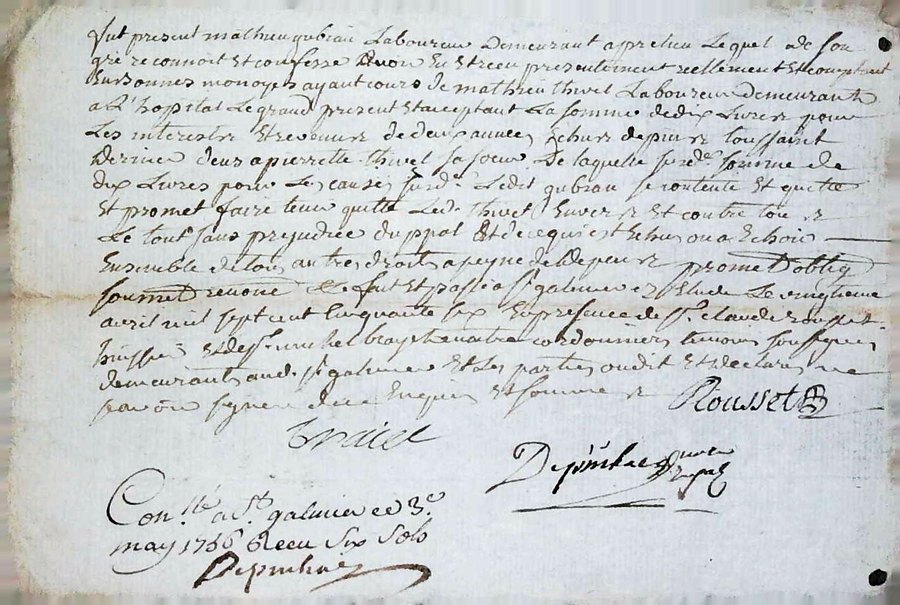 fut present mathieu gubian Laboureur Demeurant a prelieu Lequel de son
gré reconnoit Et confesse avoir Eu Et receu presentement reellement Et comptant
En bonnes monoyes ayant cours de mathieu thivet Laboureur demeurant
a L'hopital Le grand present Et aceptant La somme de dix Livres pour
Les interestz Et revenus de deux années Echues depuis toussaint
Dernier deus a pierrette thivet sa soeur de laquelle susd.e somme de
dix Livres pour Les causes susd. Ledit gubian se contente Et quitte
Et promet faire tenir quitte Led. thivet Envers Et contre tous
Le tout sans prejudice du ppal Et de ce qui Est Echus ou a Echoir
Ensemble de tous autres droits a peyne de depens promet oblig
soumet renonce &c fait Et passé a St galmier Etude Le vingtieme
avril mil sept cent cinquante six En presence de Sr claude rousset
huissier Et de Sr michel cordonnier temoins soussignes
demeurants aud. St galmier Et Les parties ont dit Et declare ne
savoir signer de ce Enquis Et sommé
Rousset
Depinhac
Con.llé a St galmier ce 3e
may 1756 Receu Six Sols
Depinhac